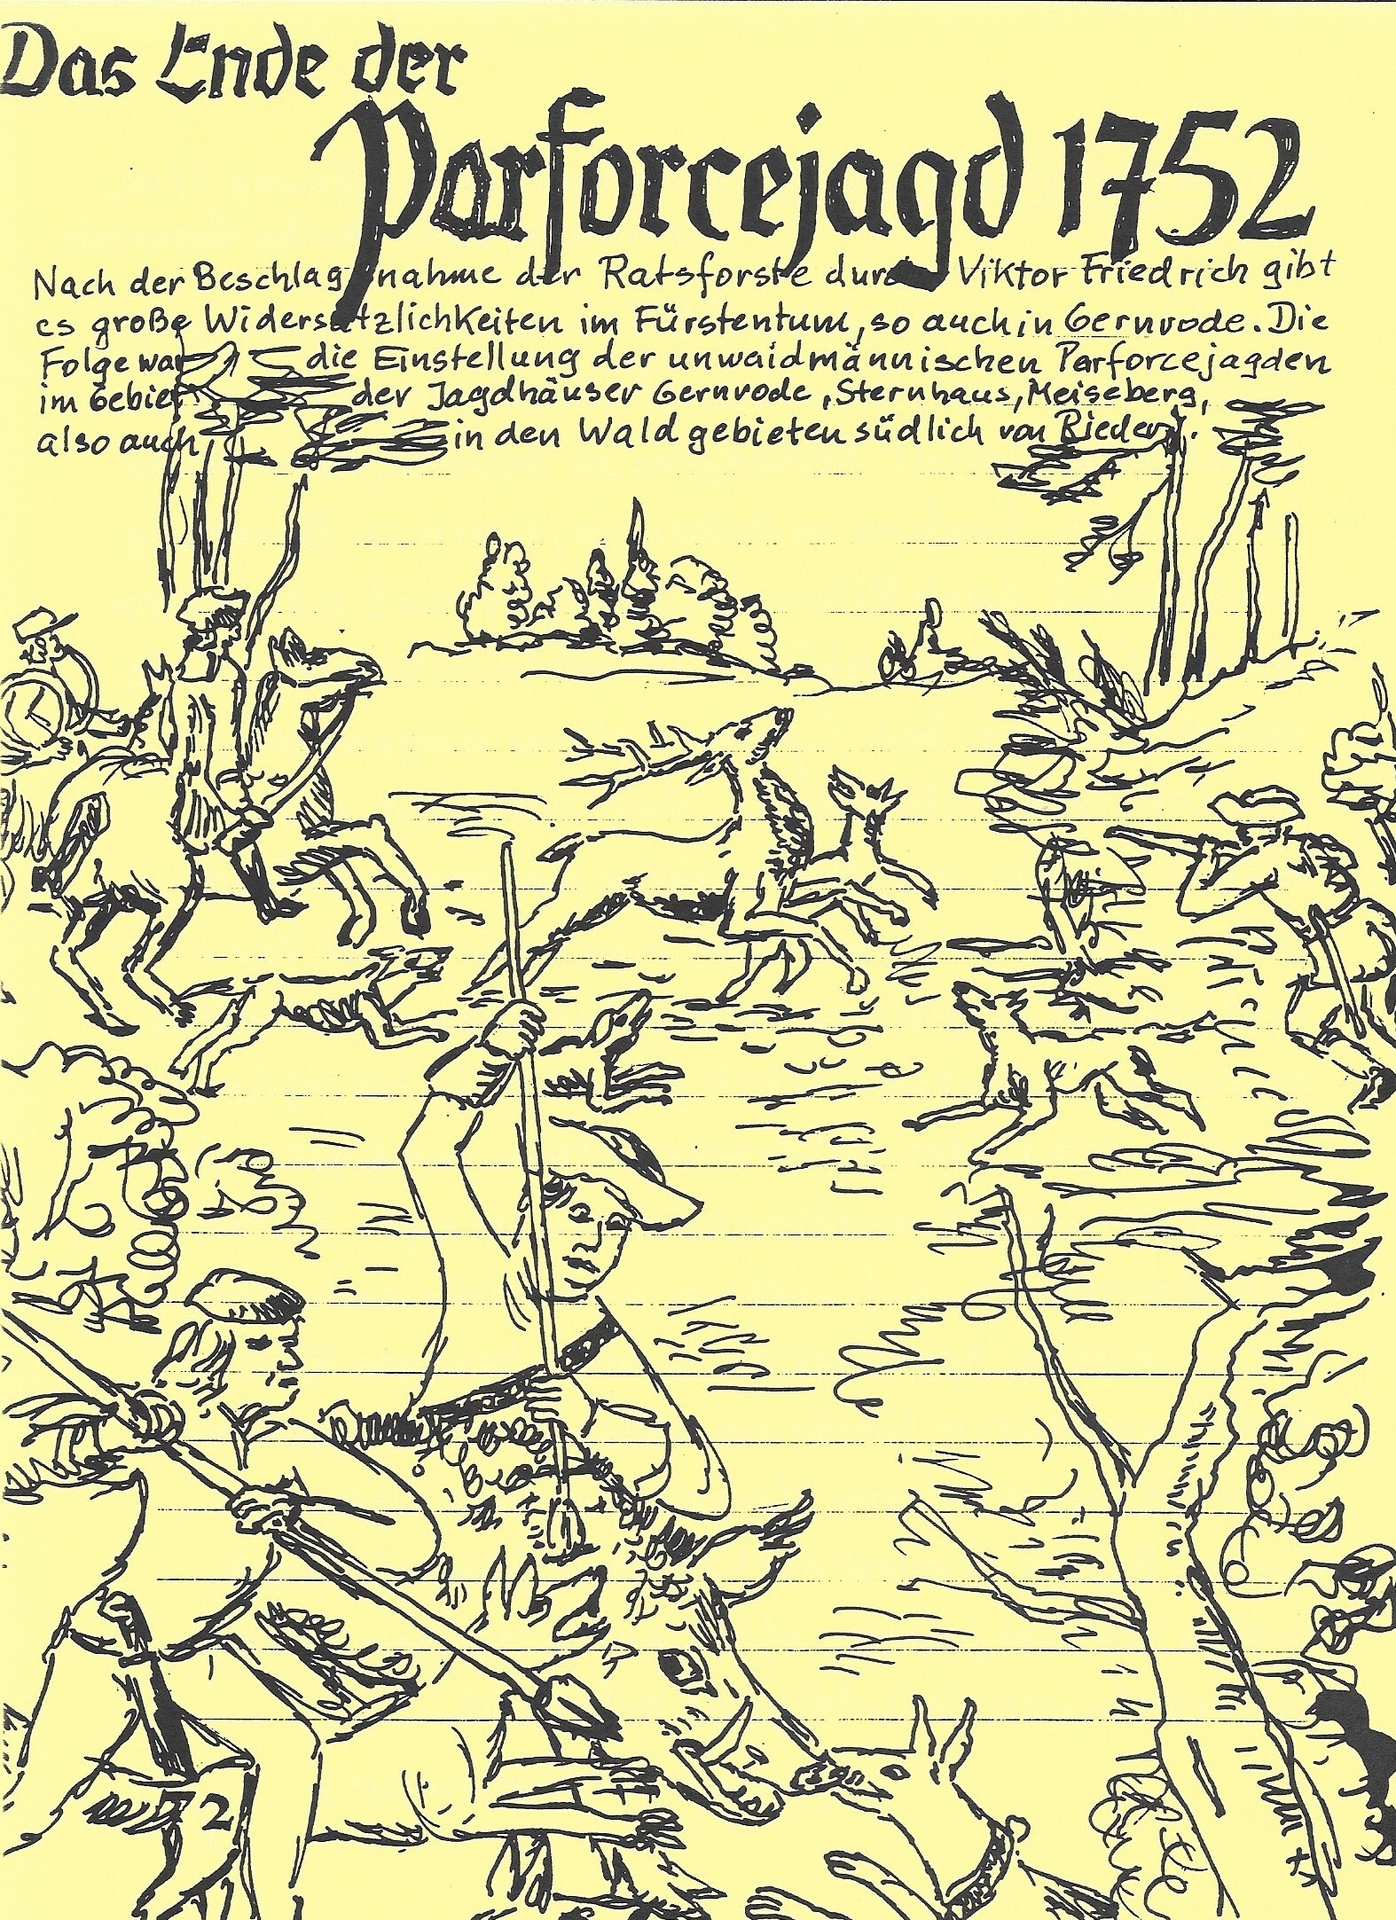 Das Ende der
Parforcejagd 1752
Nach der Beschlagnahme der Ratsforste durch Viktor Friedrich gibt
es große Widersätzlichkeiten im Fürstentum, so auch in Gernrode. Die
Folge war die Einstellung der unwaidmännischen Parforcejagden
im Gebiet der Jagdhäuser Gernrode, Sternhaus, Meiseberg,
also auch in den Waldgebieten südlich von Rieder.